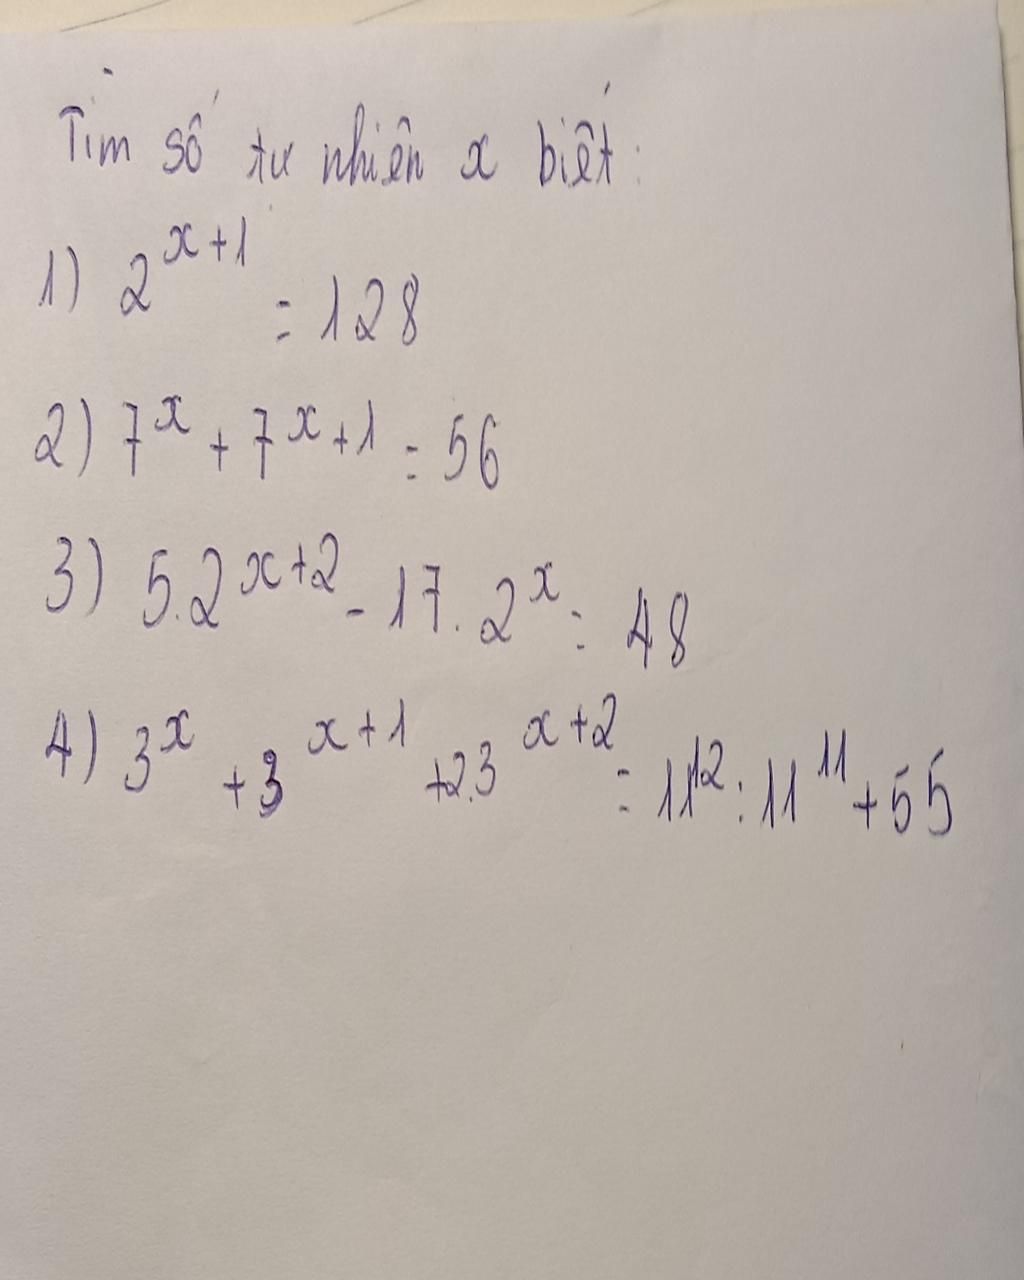 Tìm số tư nhiên x biết:
1) 2^{x+1} = 128
2) 7^x + 7^{x+1} = 56
3) 5.2^{x+2} - 17.2^x = 48
4) 3^x + 3^{x+1} + 2.3^{x+2} = 11^{12} : 11^{11} + 55